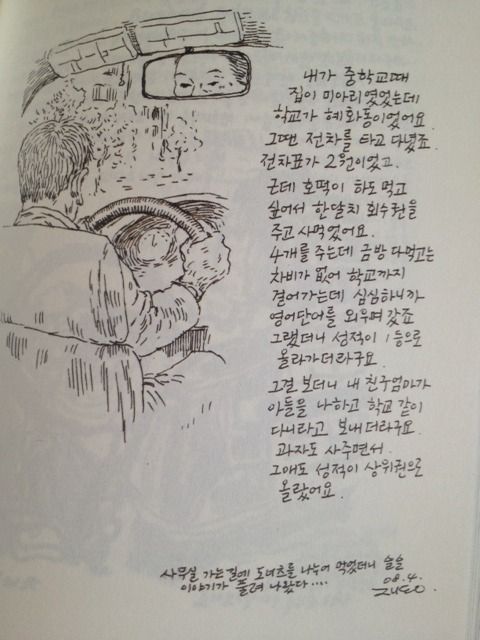 내가 중학교때
집이 미아리였었는데
학교가 혜화동이었어요.
그땐 전차를 타고 다녔죠.
전차표가 2원이었고.
근데 호떡이 하도 먹고
싶어서 한달치 회수권을
주고 사먹었어요.
4개를 주는데 금방 다먹고는
차비가 없어 학교까지
걸어가는데 심심하니까
영어단어를 외우며 갔죠
그랬더니 성적이 1등으로
올라가더라구요.
그걸 보더니 내 친구엄마가
아들을 나하고 학교 같이
다니라고 보내더라구요.
과자도 사주면서.
그애도 성적이 상위권으로
올랐어요.
사무실 가는길에 도너츠를 나누어 먹었더니 술술
이야기가 풀려 나왔다....
08.4.